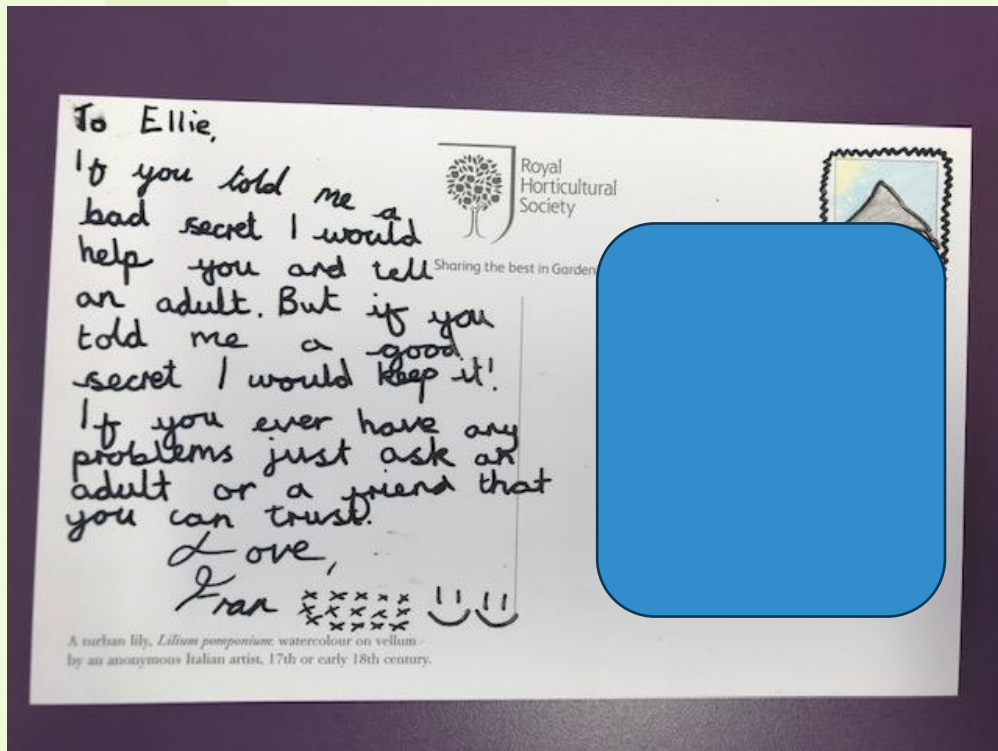 To Ellie,
If you told me a
bad secret I would
help you and tell
an adult. But if you
told me a good
secret I would keep it!
If you ever have any
problems just ask an
adult or a friend that
you can trust.
Love,
Fran
Royal
Horticultural
Society
Sharing the best in Garden
A turban lily, Lilium pomponium: watercolour on vellum
by an anonymous Italian artist, 17th or early 18th century.